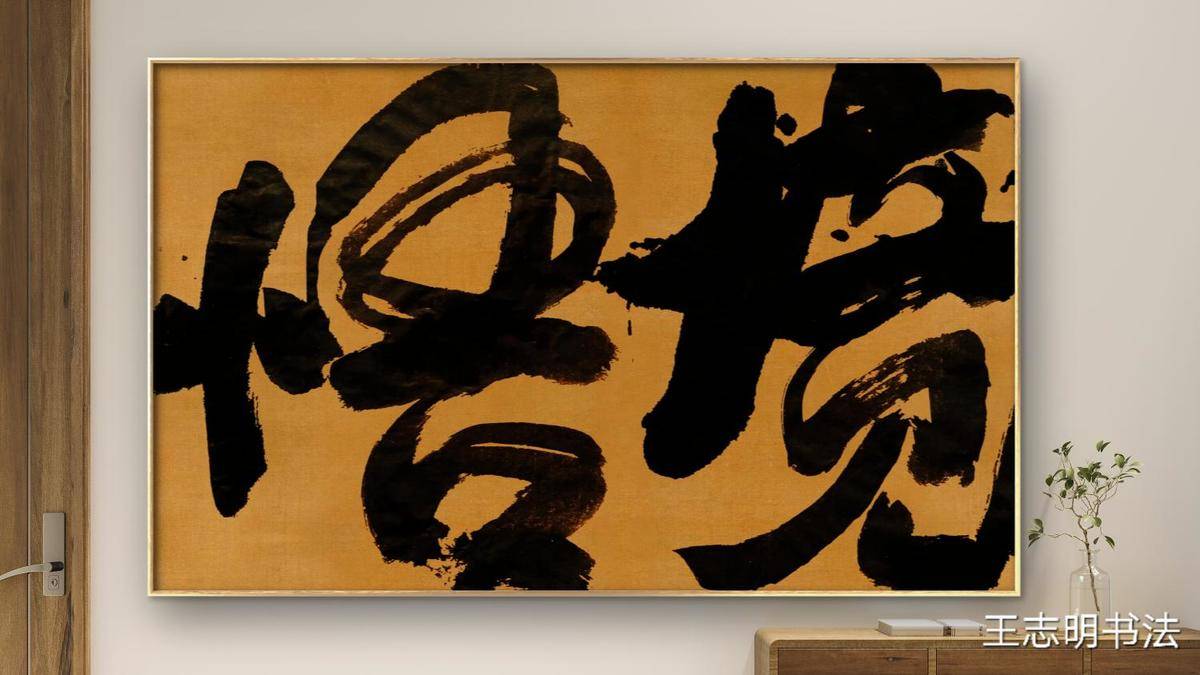 悟境
王志明书法